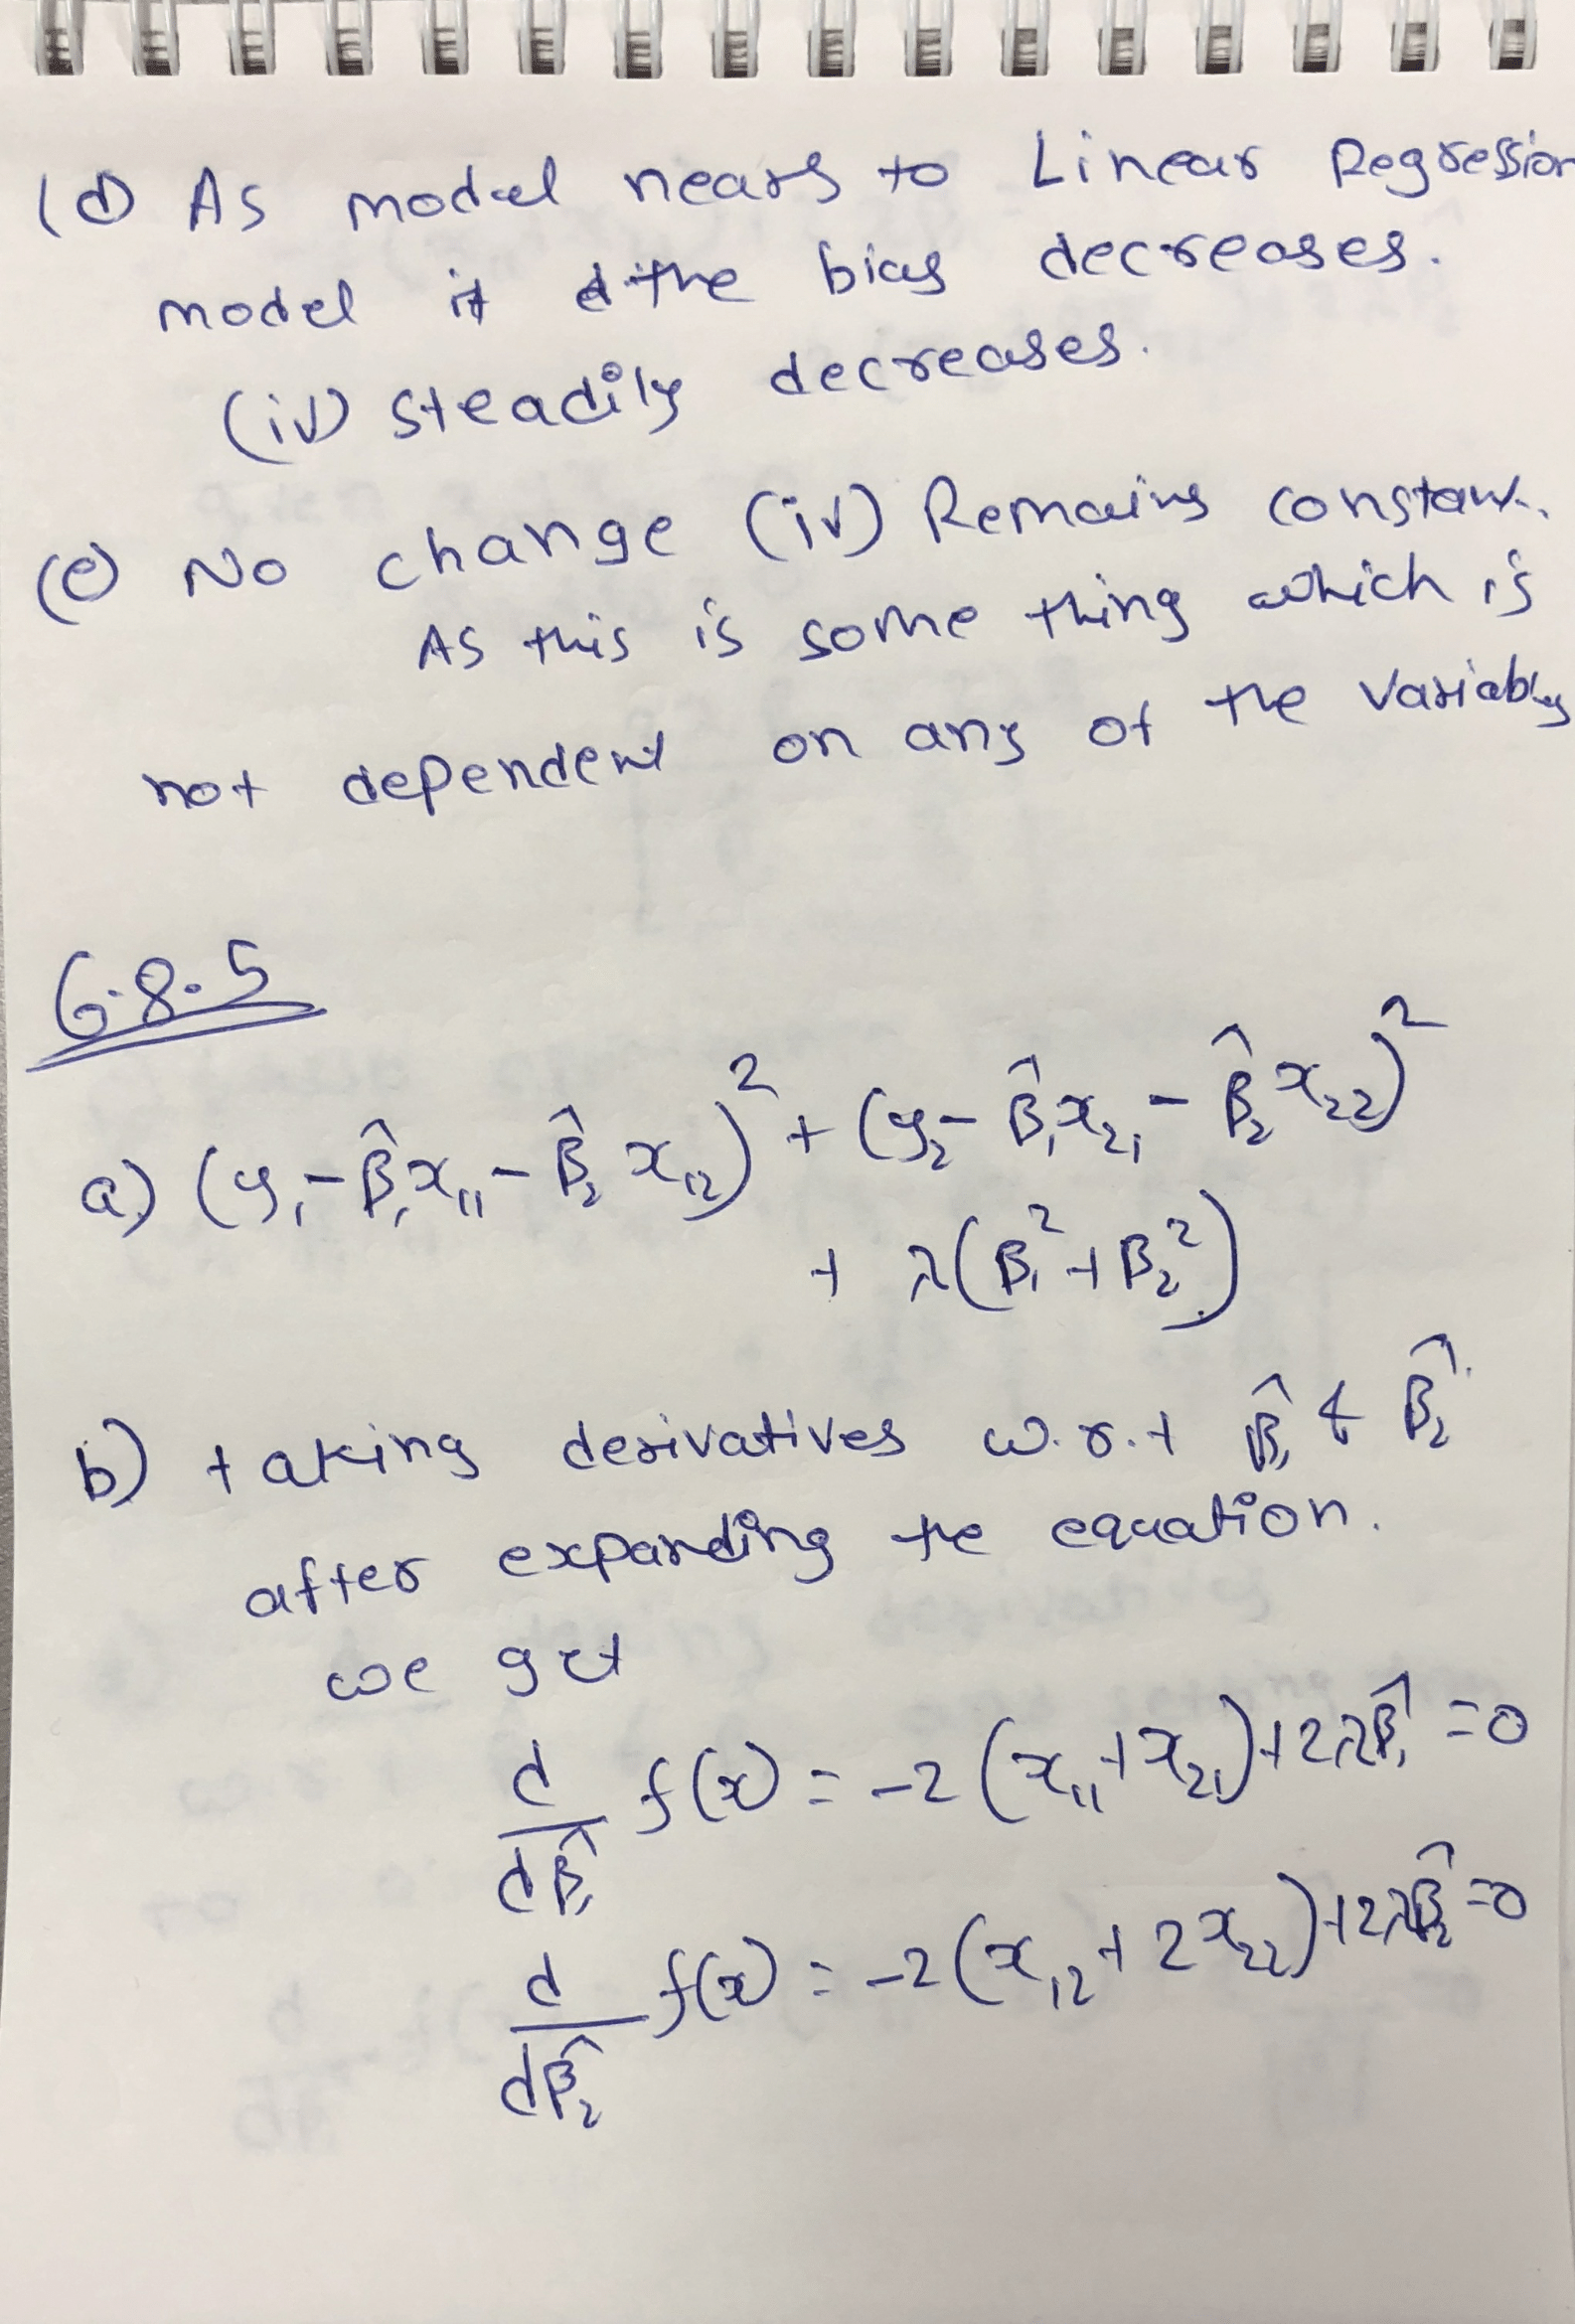 (d) As model nears to Linear Regression
model it d the bias decreases.
(iv) steadily decreases.
(e) No change (iv) Remains constant.
As this is some thing which is
not dependent on any of the variables
6.8.5
a) (y₁ - β̂₁x₁₁ - β̂₂x₁₂)² + (y₂ - β̂₁x₂₁ - β̂₂x₂₂)²
+ λ(β₁² + β₂²)
b) taking derivatives w.r.t β̂₁ & β̂₂
after expanding the equation.
we get
d/dβ̂₁ f(x) = -2(x₁₁ + x₂₁) + 2λβ̂₁ = 0
d/dβ̂₂ f(x) = -2(x₁₂ + 2x₂₂) + 2λβ̂₂ = 0